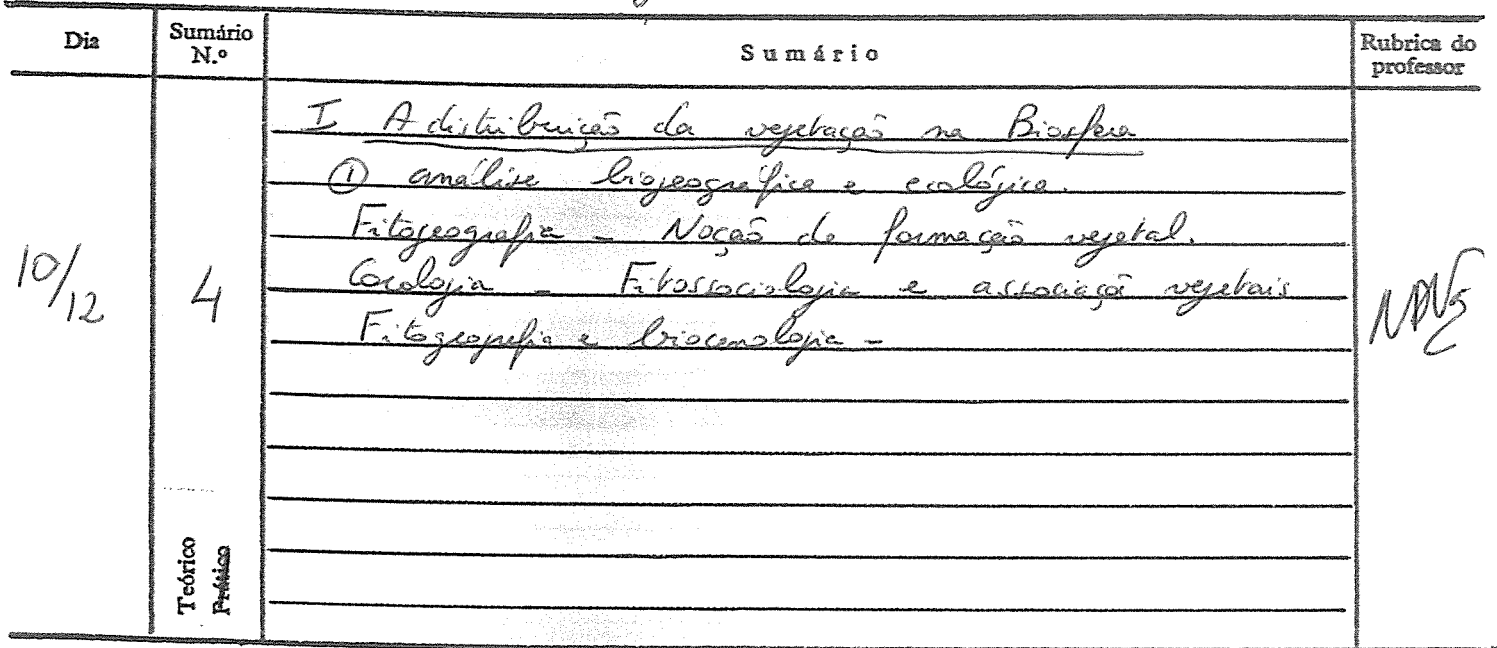 Dia Sumário N.º Sumário Rubrica do professor
10/12 4
I A distribuição da vegetação na Biosfera
① análise biogeográfica e ecológica.
Fitogeografia - Noção de formação vegetal.
Fitossociologia e associaçõ vegetais
Fitogeografia e biocenologia -
Teórico
Prático